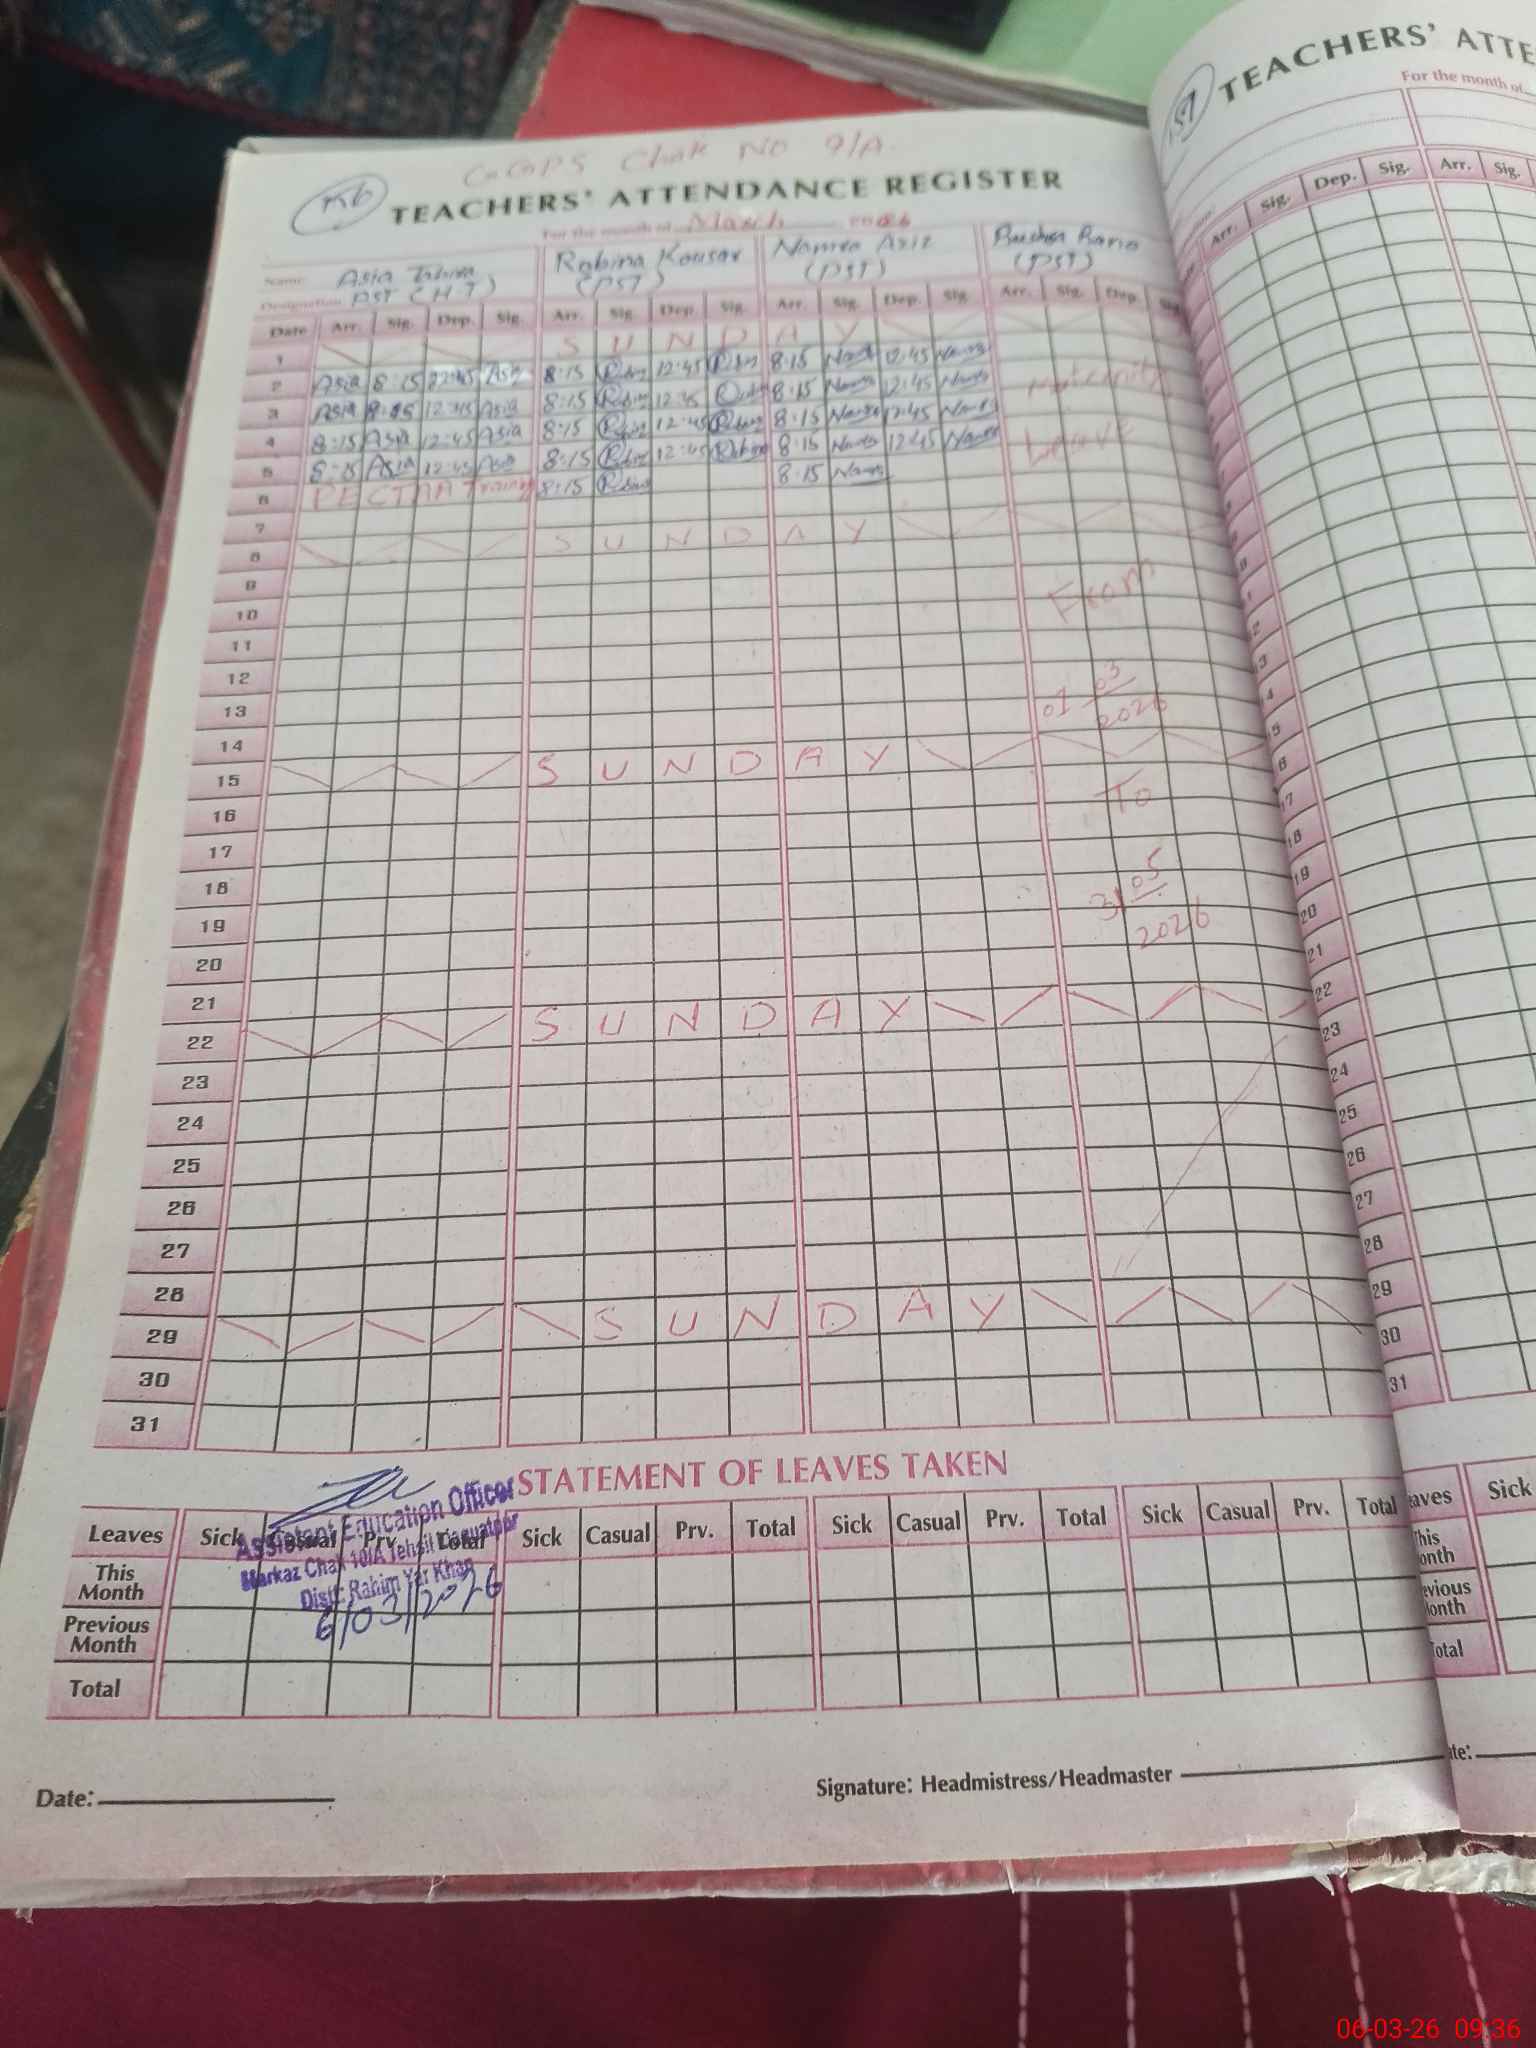 G.G.P.S Chak No 9/A
156
TEACHERS' ATTENDANCE REGISTER
For the month of March 2026
Name: Asia Tahira Robina Kousar Namra Aziz Bushra Bano
Designation PST (H.T) (PST) (PST) (PST)
Date Arr. Sig. Dep. Sig. Arr. Sig. Dep. Sig. Arr. Sig. Dep. Sig. Arr. Sig. Dep. Sig.
1 S U N D A Y
2 Asia 8:15 12:45 Asia 8:15 12:45 8:15 12:45
3 Asia 8:15 12:45 Asia 8:15 12:45 8:15 12:45 Maternity
4 8:15 Asia 12:45 Asia 8:15 12:45 8:15 12:45
5 8:15 Asia 12:45 Asia 8:15 12:45 8:15 12:45 Leave
6 PECTAA Training 8:15 8:15
7
8 S U N D A Y
9
10 From
11
12
13 01 03
14 2026
15 S U N D A Y
16 To
17
18 31 05
19 2026
20
21
22 S U N D A Y
23
24
25
26
27
28
29 S U N D A Y
30
31
STATEMENT OF LEAVES TAKEN
Leaves Sick Casual Prv. Total Sick Casual Prv. Total Sick Casual Prv. Total Sick Casual Prv. Total
This Month
Previous Month
Total
Assistant Education Officer
Markaz Chak 10/A Tehsil Liaquatpur
Distt: Rahim Yar Khan
6/03/2026
Date:
Signature: Headmistress/Headmaster
157
TEACHERS' ATTE
For the month of
Arr. Sig. Dep. Sig. Arr. Sig.
22
23
24
25
26
27
28
29
30
31
Sick
06-03-26 09:36